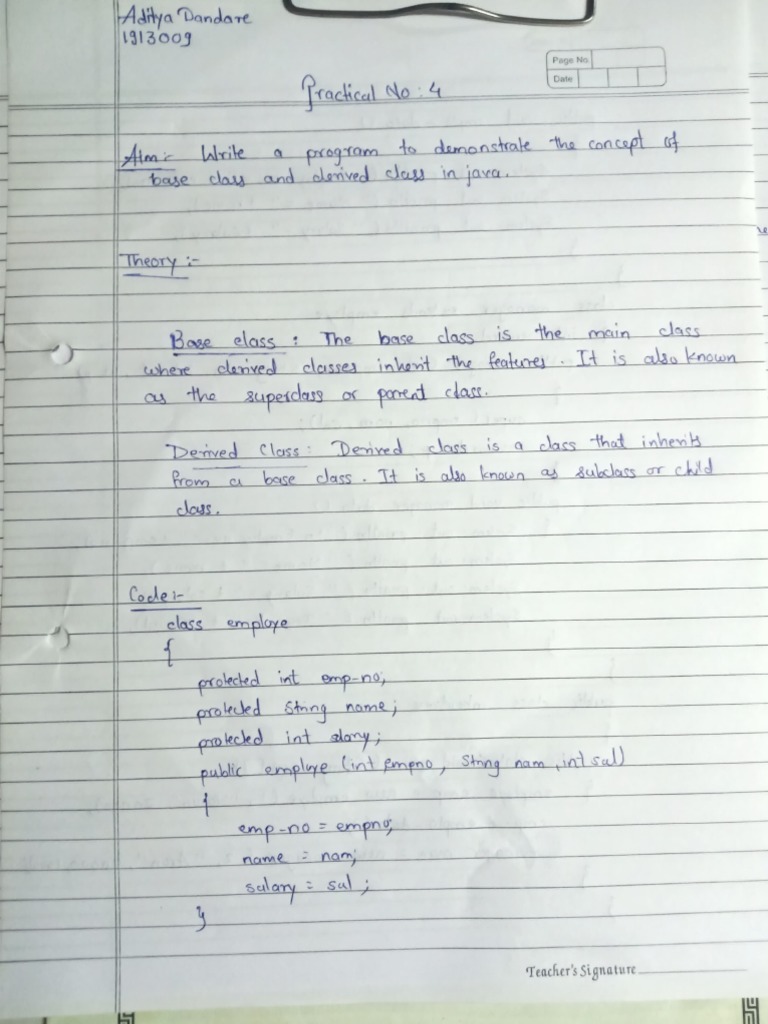 Aditya Dandare
1913009
Page No.
Date
Practical No : 4
Aim :- Write a program to demonstrate the concept of
base class and derived class in java.
Theory :-
Base class : The base class is the main class
where derived classes inherit the features. It is also known
as the superclass or parent class.
Derived Class : Derived class is a class that inherits
from a base class. It is also known as subclass or child
class.
Code :-
class employe
{
protected int emp-no;
protected String name;
protected int slary;
public employe (int empno, String nam, int sal)
{
emp-no = empno;
name = nam;
salary = sal ;
}
Teacher's Signature